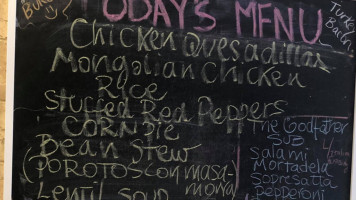 TODAY'S MENU
Chicken Quesadillas
Mongolian Chicken
Rice
Stuffed Red Peppers
CORN pie
Bean Stew
(POROTOS con masa-
morra)
Lentil Soup
Turkey
The Godfather
SUB
Salami
Mortadela
Sopresatta
pepperoni